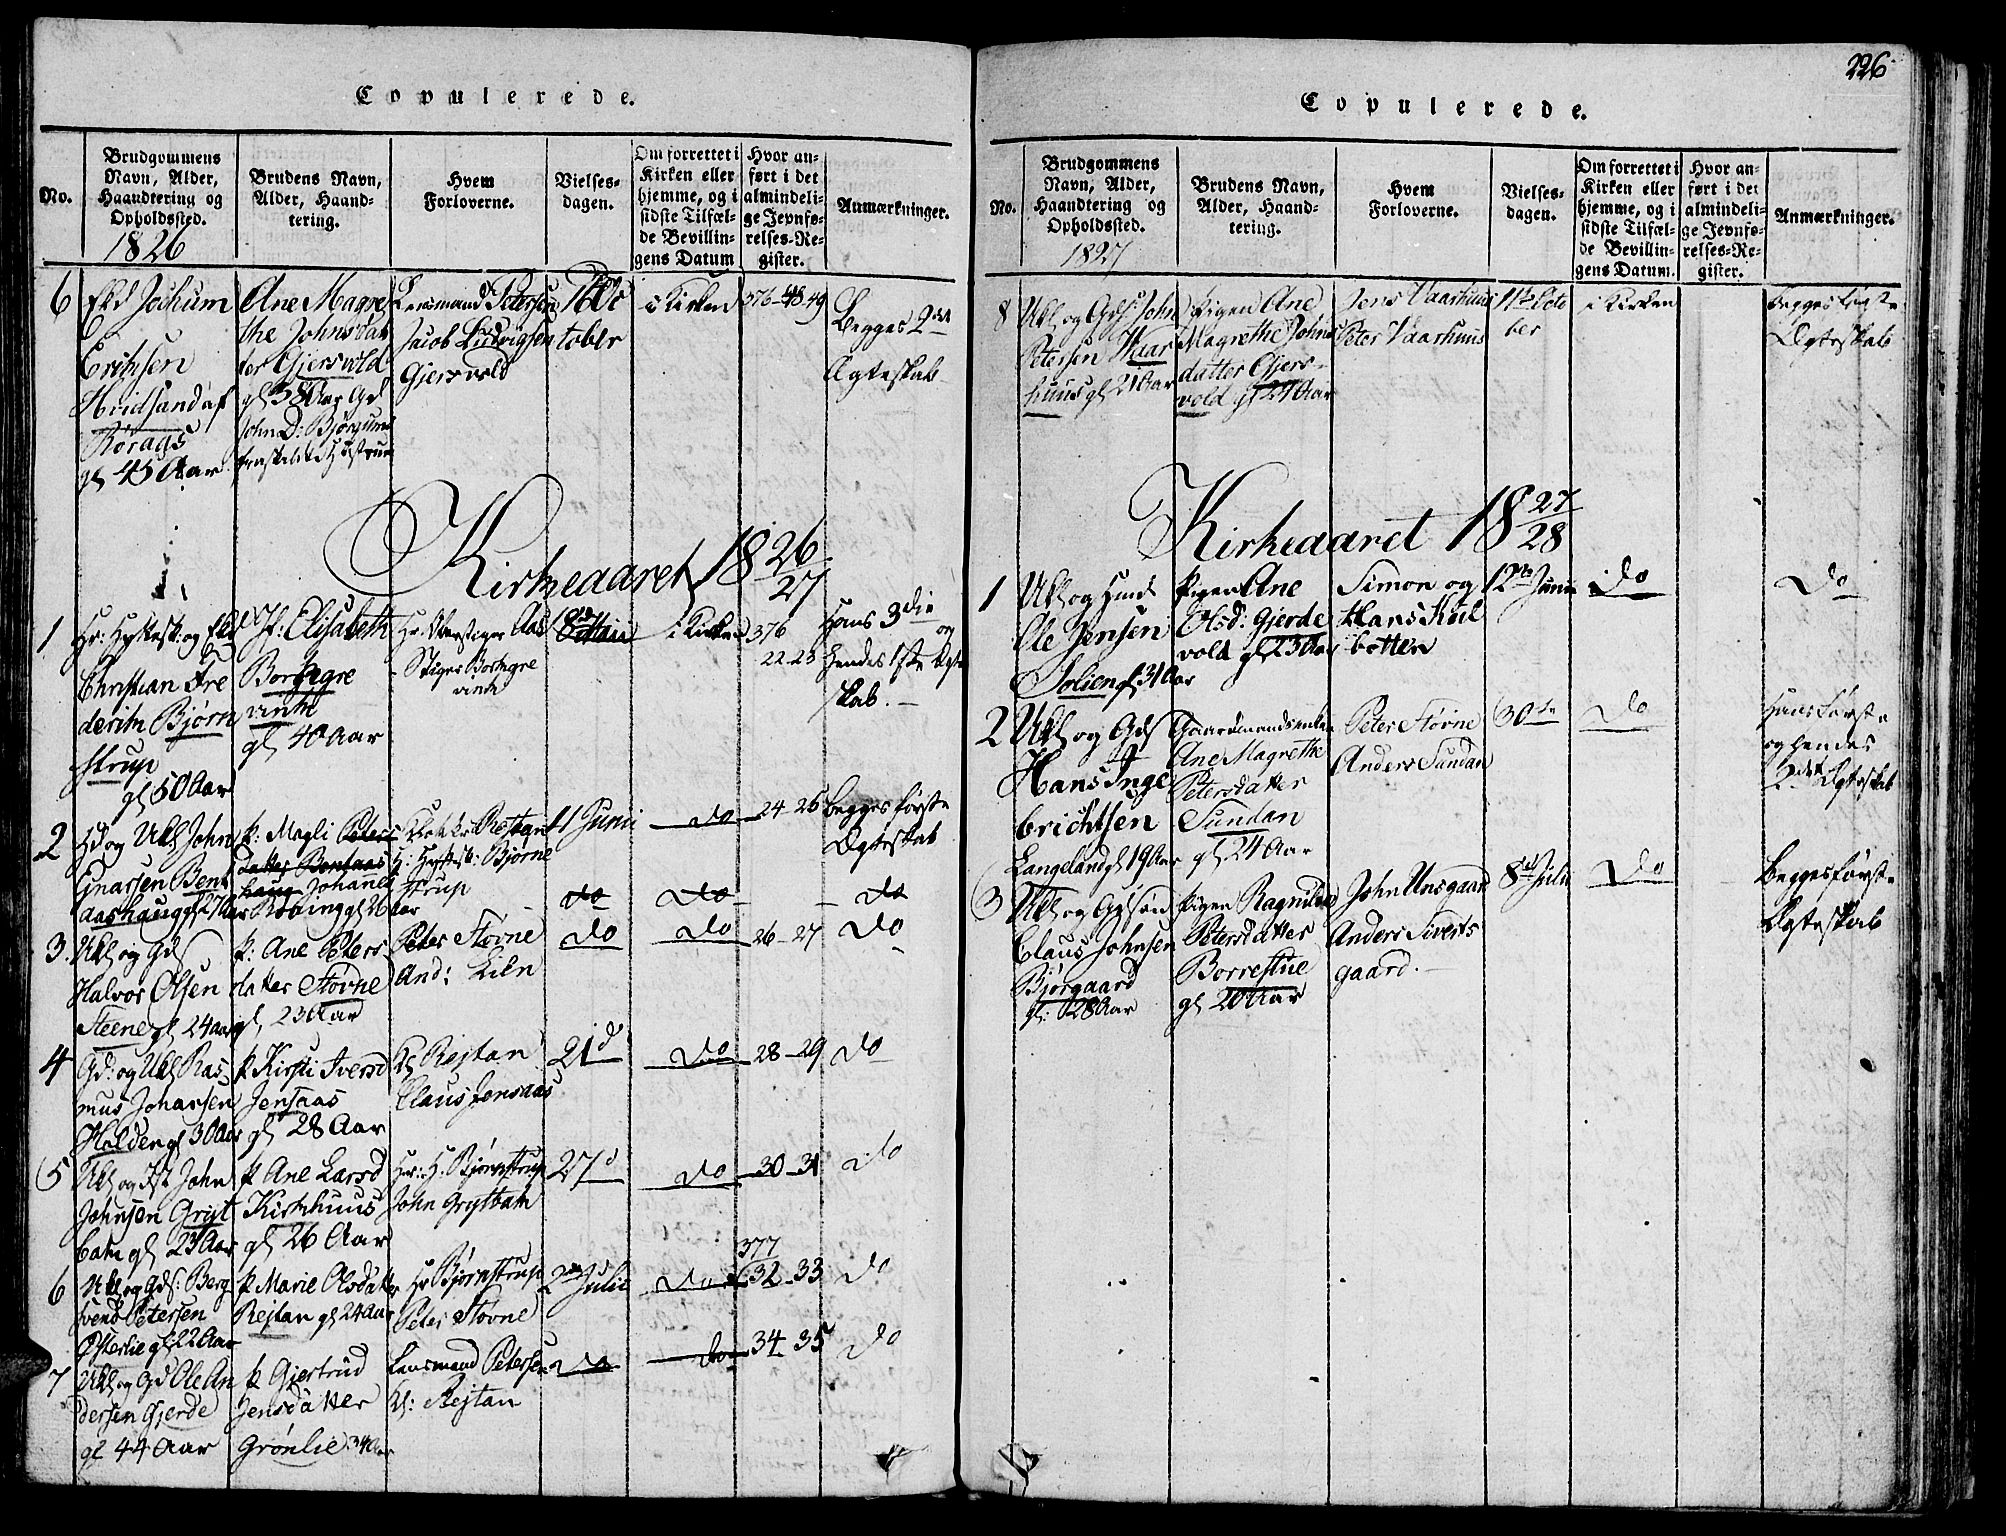 Copulerede.
No.
Brudgommens
Navn, Alder,
Haandtering og
Opholdssted.
1826
Brudens Navn,
Alder, Haand-
tering.
Hvem
Forloverne.
Vielses-
dagen.
Om forrettet i
Kirken eller
hjemme, og i
sidste Tilfæl-
de Bevillin-
gens Datum
Hvor an-
ført i det
almindeli-
ge Jevnfø-
relses-Re-
gister.
Anmærkninger.
6
Jochum
Erichsen
Hvidsand af
Røraas
gl 45 Aar
Ane Magre
the Johnsdat
ter Gjersvold
gl 38 Aar Gd
John D: Bjørgums
fraskilte Hustrue
Lensmand Petersen
Jacob Ludvigsen
Gjersvold
tober
i Kirken
376-48-49
Begges 2det
Ægteskab
Kirkeaaret 1826/27
1
Christian Fre
derich Bjørn
strup
gl 50 Aar
Jf: Elisabeth
Borchgre
vinck
gl 40 Aar
Hr: Overstiger Aas
Stiger Borchgre
vinck
i Kirken
376
22-23
Hans 3die
og
hendes 1ste Ægte
skab.
2
John
gl 27 Aar
p: Magli Peters
Johannes
gl 26 Aar
Klokker Rejtan
Bjørn
strup
11 Junii
do
24-25
Begges første
Ægteskab
do
do
do
3.
Ukl og Gds
Halvor Olsen
Steene gl 24 aar
p: Ane Peters
datter Støvne
gl 23 Aar
Peter Støvne
And: Lien
do
do
26-27
do
4
Gd: og Ukl Ras
mus Johansen
Holden gl 30 Aar
p Kirsti Iversd
Jensaas
gl 28 Aar
Kl Rejtan
Claus Jensaas
21d
do
28-29
do
5
John
Johnsen Grygt
bakk gl 23 Aar
p Ane Larsd
Kirkhuus
gl 26 Aar
Hr: H. Bjørnstrup
John Grytbakk
27d
do
30-31
do
6
Ukl og Gds: Berg
svend Petersen
Østerlie gl 22 Aar
p Marie Olsdatter
Rejtan gl 24 Aar
Hr Bjørnstrup
Peter Støvne
2den Julii
do
377
32-33
do
7
Ukl og Gd Ole An
dersen Gjerde
gl 44 Aar
p Gjertrud
Jensdatter
Grønlie 34 Aar
Lensmand Petersen
Kl: Rejtan
do
do
34-35
do
226
Copulerede.
No.
Brudgommens
Navn, Alder,
Haandtering og
Opholdssted.
1827
Brudens Navn,
Alder, Haand-
tering.
Hvem
Forloverne.
Vielses-
dagen.
Om forrettet i
Kirken eller
hjemme, og i
sidste Tilfæl-
de Bevillin-
gens Datum.
Hvor an-
ført i det
almindeli-
ge Jevnfø-
relses-Re-
gister.
Anmærkninger.
8
Ukl og Gds John
Petersen Vaar
huus gl 21 Aar
Pigen Ane
Magrethe Johns
datter Gjers-
vold gl 24 Aar
Jens Vaarhuus
Peter Vaarhuus
11te Octo
ber
i Kirken
Begges første
Ægteskab
Kirkeaaret 1827/28
1
Ukl og
Ole Jensen
Solien gl 31 Aar
Pigen Ane
Olsd: Gjerde
vold gl 23 Aar
Simon og
Hans Kul
botten
12te Junii
do
do
2
Ukl og Gds
Hans Inge
brichtsen
Langeland gl 19 Aar
Gaardmandsenken
Ane Magrethe
Petersdatter
Sundan
gl 24 Aar
Peter Støvne
Anders Sundan
30te
do
Hans første
og hendes
2det Ægteskab
3
Ukl og Gdsøn
Claus Johnsen
Bjørgaard
gl: 28 Aar
Pigen Ragnild
Petersdatter
Borrestue
gl 20 Aar
John Unsgaard
Anders Siverts
gaard.
8de Julii
do
Begges første
Ægteskab